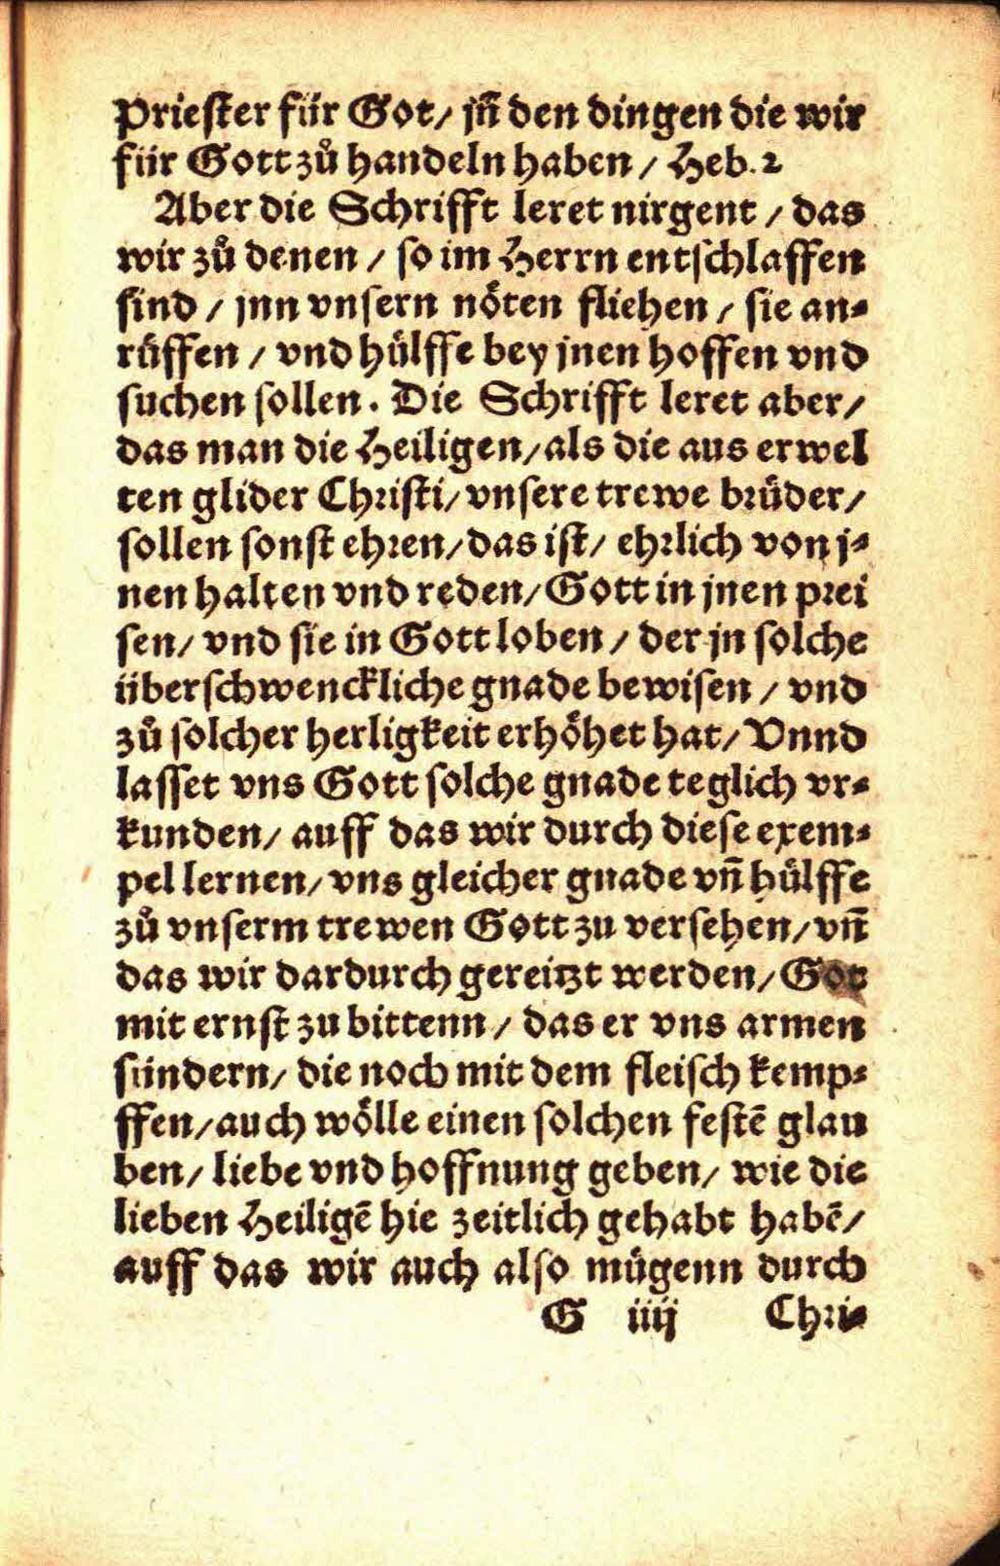 Priester für Got/ jn̄ den dingen die wir
für Gott zů handeln haben / Heb. 2
Aber die Schrifft leret nirgent / das
wir zů denen / so im Herrn entschlaffen
sind / jnn vnsern nöten fliehen / sie an⸗
rüffen / vnd hülffe bey jnen hoffen vnd
suchen sollen. Die Schrifft leret aber/
das man die Heiligen/ als die aus erwel
ten glider Christi/ vnsere trewe brüder/
sollen sonst ehren/ das ist/ ehrlich von j⸗
nen halten vnd reden/ Gott in jnen prei
sen/ vnd sie in Gott loben / der jn solche
überschwenckliche gnade bewisen / vnd
zů solcher herligkeit erhöhet hat/ Vnnd
lasset vns Gott solche gnade teglich vr⸗
kunden/ auff das wir durch diese exem⸗
pel lernen/ vns gleicher gnade vn̄ hülffe
zů vnserm trewen Gott zu versehen/ vn̄
das wir dardurch gereitzt werden/ Got
mit ernst zu bittenn / das er vns armen
sündern/ die noch mit dem fleisch kemp⸗
ffen/ auch wölle einen solchen festē glau
ben/ liebe vnd hoffnung geben/ wie die
lieben Heiligē hie zeitlich gehabt habē/
auff das wir auch also mügenn durch
G iiij Chri⸗